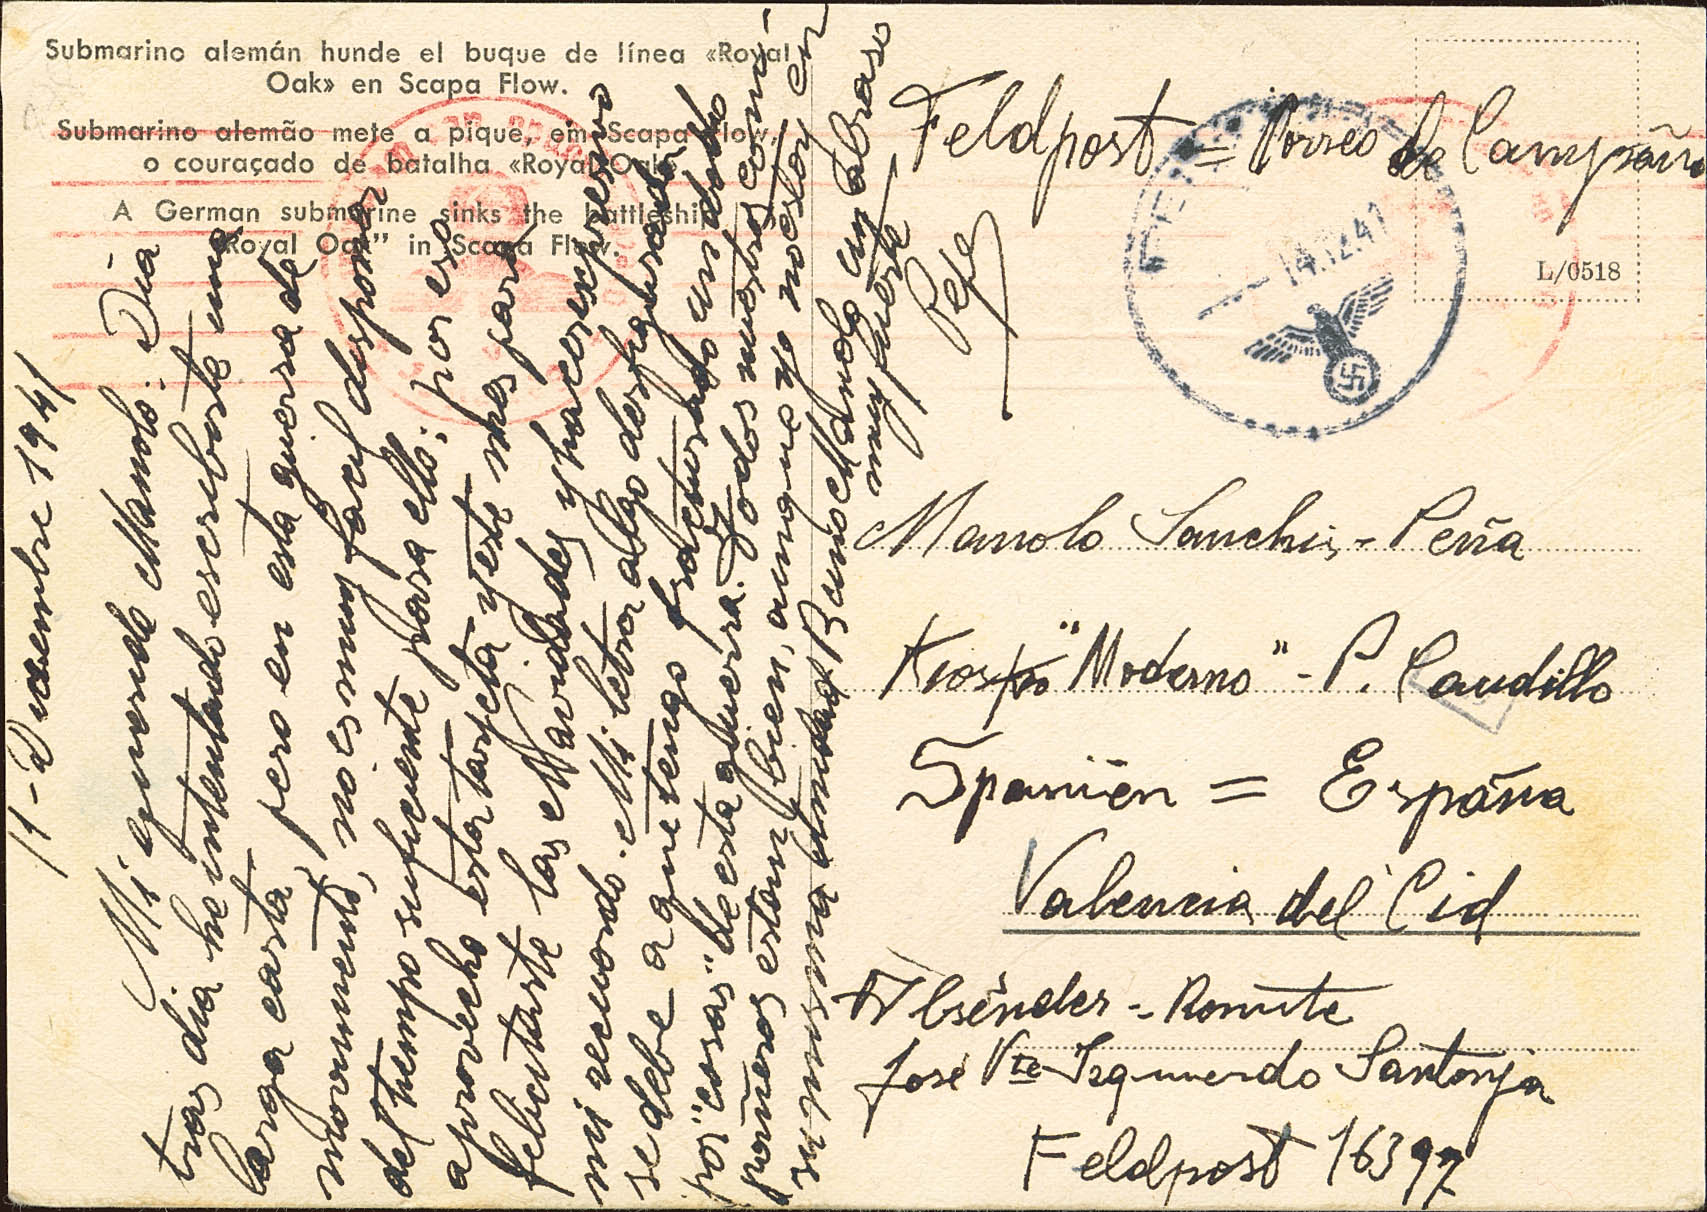 Submarino alemán hunde el buque de línea «Royal
Oak» en Scapa Flow.
Submarino alemão mete a pique, em Scapa Flow,
o couraçado de batalha «Royal Oak».
A German submarine sinks the battleship
"Royal Oak" in Scapa Flow.
11-Diciembre 1941
Mi querido Manolo: Dia
tras dia he intentado escribirte una
larga carta, pero en esta guerra de
movimiento, no es muy facil disponer
del tiempo suficiente para ello; por eso
aprovecho esta tarjeta y este mes para
felicitarte las Navidades y hacer expresivo
mi recuerdo. Mi letra algo desfigurada
se debe a que tengo fracturado un dedo
por "cosas" de esta guerra. Todos nuestros com-
pañeros estan bien, aunque yo no estoy en
su misma unidad. Buno Manolo un abraso
muy fuerte
Pepe
Feldpost = Correo de Campaña
14.12.41
L/0518
Manolo Sanchis-Peña
Kiosko "Moderno" - P. Caudillo
Spanien = España
Valencia del Cid
Absender - Remite
José Vte Izquierdo Santonja
Feldpost 16397